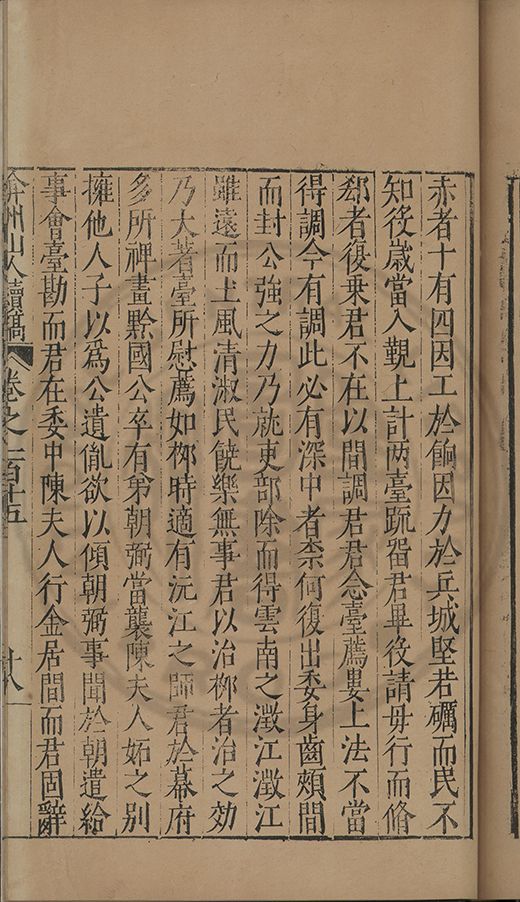 赤者十有四因工於餉因力於兵城堅若礪而民不
知役歲當入覲上計两臺䟽畱君畢役請毋行而脩
郄者復乗君不在以間調君君念臺薦婁上法不當
得調今有調此必有深中者柰何復出委身齒頰間
而封公強之力乃就吏部除而得雲南之澂江澂江
雖遠而土風清淑民饒樂無事君以治桞者治之効
乃大著臺所慰薦如桞時適有沅江之師君於幕府
多所裨畫黔國公卒有弟朝弼當襲陳夫人妬之别
擁他人子以爲公遺胤欲以傾朝弼事聞於朝遣給
事會臺勘而君在委中陳夫人行金居間而君固辭
弇州山人續稿 卷之一百十五 十八